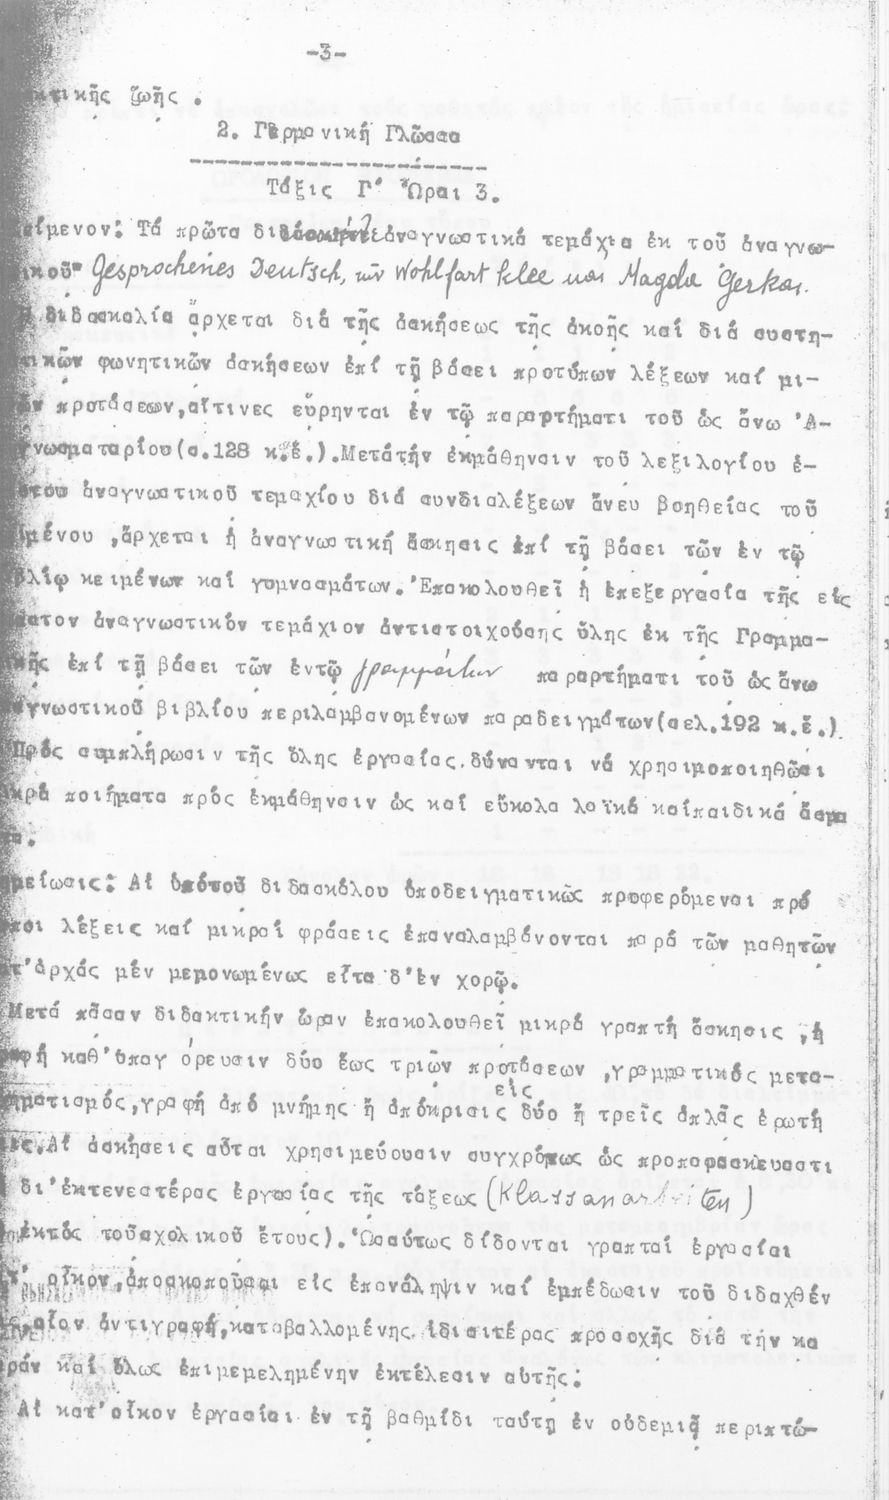 -3-
κτικῆς ζωῆς .
2. Γερμανική Γλῶσσα
Τάξις Γ΄ Ὧραι 3.
είμενον: Τά πρῶτα ἀναγνωστικά τεμάχια ἐκ τοῦ ἀναγνω-
ικοῦ" Gesprochenes Deutsch, τῶν Wohlfart Klee και Magda Gerkas.
Ἡ διδασκαλία ἄρχεται διά τῆς ἀσκήσεως τῆς ἀκοῆς καί διά συστη-
τικῶν φωνητικῶν ἀσκήσεων ἐπί τῇ βάσει προτύπων λέξεων καί μι-
ῶν προτάσεων,αἵτινες εὕρηνται ἐν τῷ παραρτήματι τοῦ ὡς ἄνω Ἀ-
γνωσματαρίου(σ.128 κ.ἑ.).Μετάτήν ἐκμάθησιν τοῦ λεξιλογίου ἑ-
στου ἀναγνωστικοῦ τεμαχίου διά συνδιαλέξεων ἄνευ βοηθείας τοῦ
ιμένου ,ἄρχεται ἡ ἀναγνωστική ἄσκησις ἐπί τῇ βάσει τῶν ἐν τῷ
βλίῳ κειμένων καί γυμνασμάτων.Ἐπακολουθεῖ ἡ ἐπεξεργασία τῆς εἰς
αστον ἀναγνωστικόν τεμάχιον ἀντιστοιχούσης ὕλης ἐκ τῆς Γραμμα-
ικῆς ἐπί τῇ βάσει τῶν ἐντῷ παραρτήματι τοῦ ὡς ἄνω
αγνωστικοῦ βιβλίου περιλαμβανομένων παραδειγμάτων(σελ.192 κ.ἑ.)
Πρός συμπλήρωσιν τῆς ὅλης ἐργασίας.δύνανται νά χρησιμοποιηθῶσι
ικρά ποιήματα πρός ἐκμάθησιν ὡς καί εὔκολα λαϊκά καίπαιδικά ἄσμα
τα.
ημείωσις: Αἱ ὑπότοῦ διδασκάλου ὑποδειγματικῶς προφερόμεναι πρό
υποι λέξεις καί μικραί φράσεις ἐπαναλαμβάνονται παρά τῶν μαθητῶν
ατ'ἀρχάς μέν μεμονωμένως εἶτα δ'ἐν χορῷ.
Μετά πᾶσαν διδακτικήν ὥραν ἐπακολουθεῖ μικρά γραπτή ἄσκησις ,ἡ
ραφή καθ'ὑπαγόρευσιν δύο ἕως τριῶν προτάσεων ,γραμματικός μετα-
εἰς
ηματισμός,γραφή ἀπό μνήμης ἤ ἀπόκρισις δύο ἤ τρεῖς ἁπλᾶς ἐρωτή
εις.Αἱ ἀσκήσεις αὗται χρησιμεύουσιν συγχρόνως ὡς προπαρασκευαστι
δι'ἐκτενεστέρας ἐργασίας τῆς τάξεως (Klassenarbeiten)
ἐκτός τοῦσχολικοῦ ἔτους).Ὡσαύτως δίδονται γραπταί ἐργασίαι
τ' οἶκον,ἀποσκοποῦσαι εἰς ἐπανάληψιν καί ἐμπέδωσιν τοῦ διδαχθέν
οἷον ἀντιγραφή,καταβαλλομένης ἰδιαιτέρας προσοχῆς διά τήν κα
ράν καί ὅλως ἐπιμεμελημένην ἐκτέλεσιν αὐτῆς:
Αἱ κατ'οἶκον ἐργασίαι ἐν τῇ βαθμίδι ταύτῃ ἐν οὐδεμιᾷ περιπτώ-